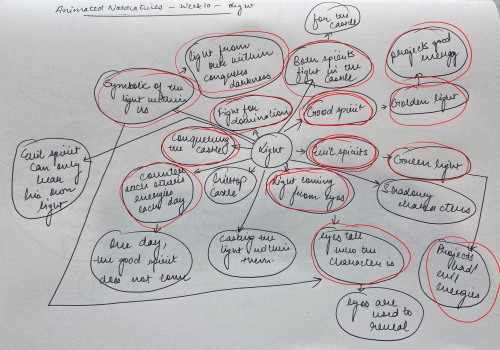 Animated Narratives - Week 10 - Light
for the
castle
light from
one within
conquers
darkness
Both spirits
fight in the
castle
projects good
energy
Symbolic of the
light within
us
Fight for
domination
Good spirit
Golden light
Conquering
the castle
Light
Evil spirits
Green light
Evil spirit
can only
bear
his own
light
counters
each others
energies
each day
hilltop
castle
Light coming
from eyes
Shadowy
characters
One day,
the good spirit
does not come
casting the
light within
them.
eyes tell
who the
character is
Projects
bad/
evil
energies
eyes are
used to
reveal